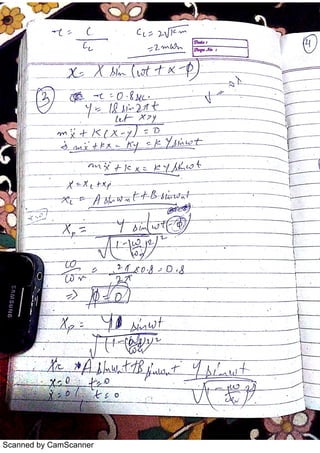 C_c = 2√km
= 2mωn
Date :
Page No. :
4
x = X sin (ωt + α - φ)
3
τ = 0.8 sec.
y = 18 sin 2πt
let x>y
mẍ + K(x-y) = 0
mẍ + kx - Ky = k Y sin ωt
mẍ + kx = k Y sin ωt
x = x_c + x_p
x_c = A sin ωnt + B sin ωnt
x_p = Y sin(ωt - φ)
√(1-(ω/ωn)²)²
ω/ωn = 2π/2π x 0.8 = 0.8
=> φ = 0
x_p = Y sin ωt
√(1-(ω/ωn)²)²
x = A sin ωnt + B sin ωnt + Y sin ωt
x=0 t=0
ẋ=0 t=0
SAMSUNG
Scanned by CamScanner